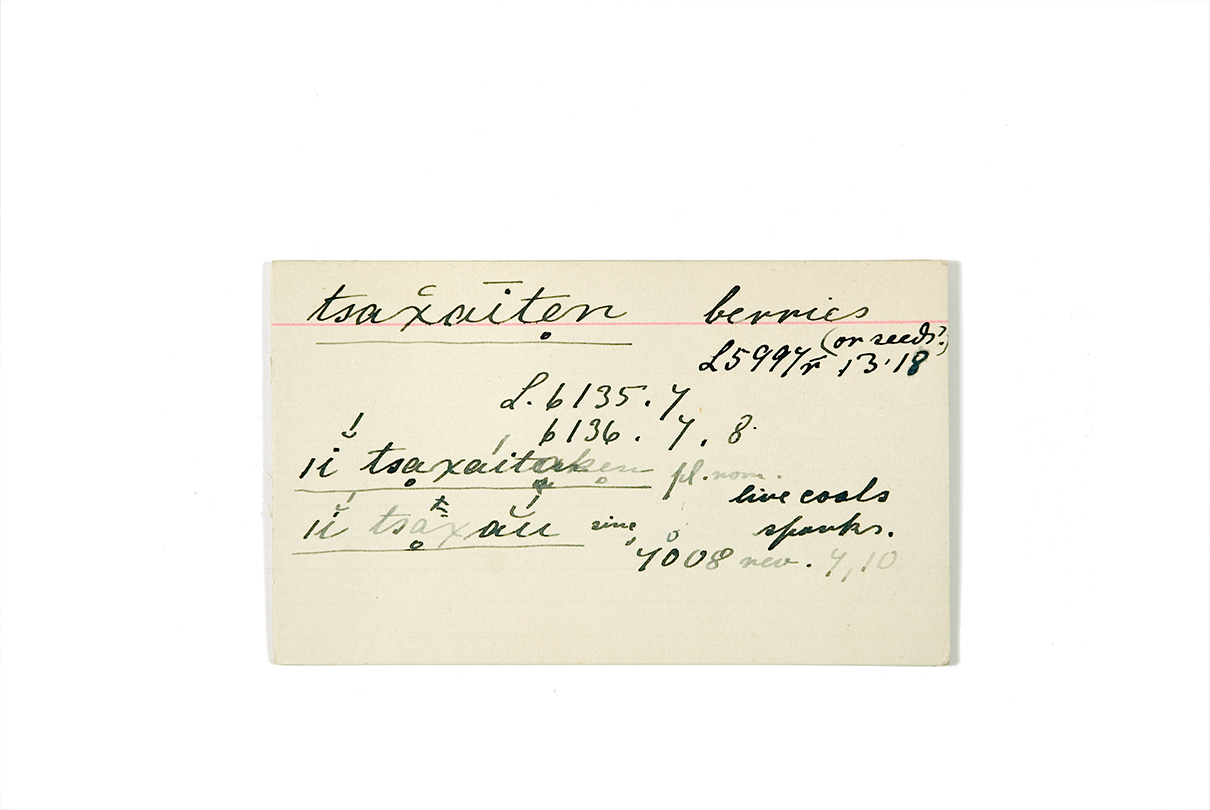 tsax̆aītẹn berries
(or seeds?)
L5997r 13.18
L. 6135.7
6136. 7, 8.
ıı̆ tsạxaitạkẹn pl. nom.
live coals
ıı̆ tsạxăú sing. sparks.
7008 rev. 7, 10